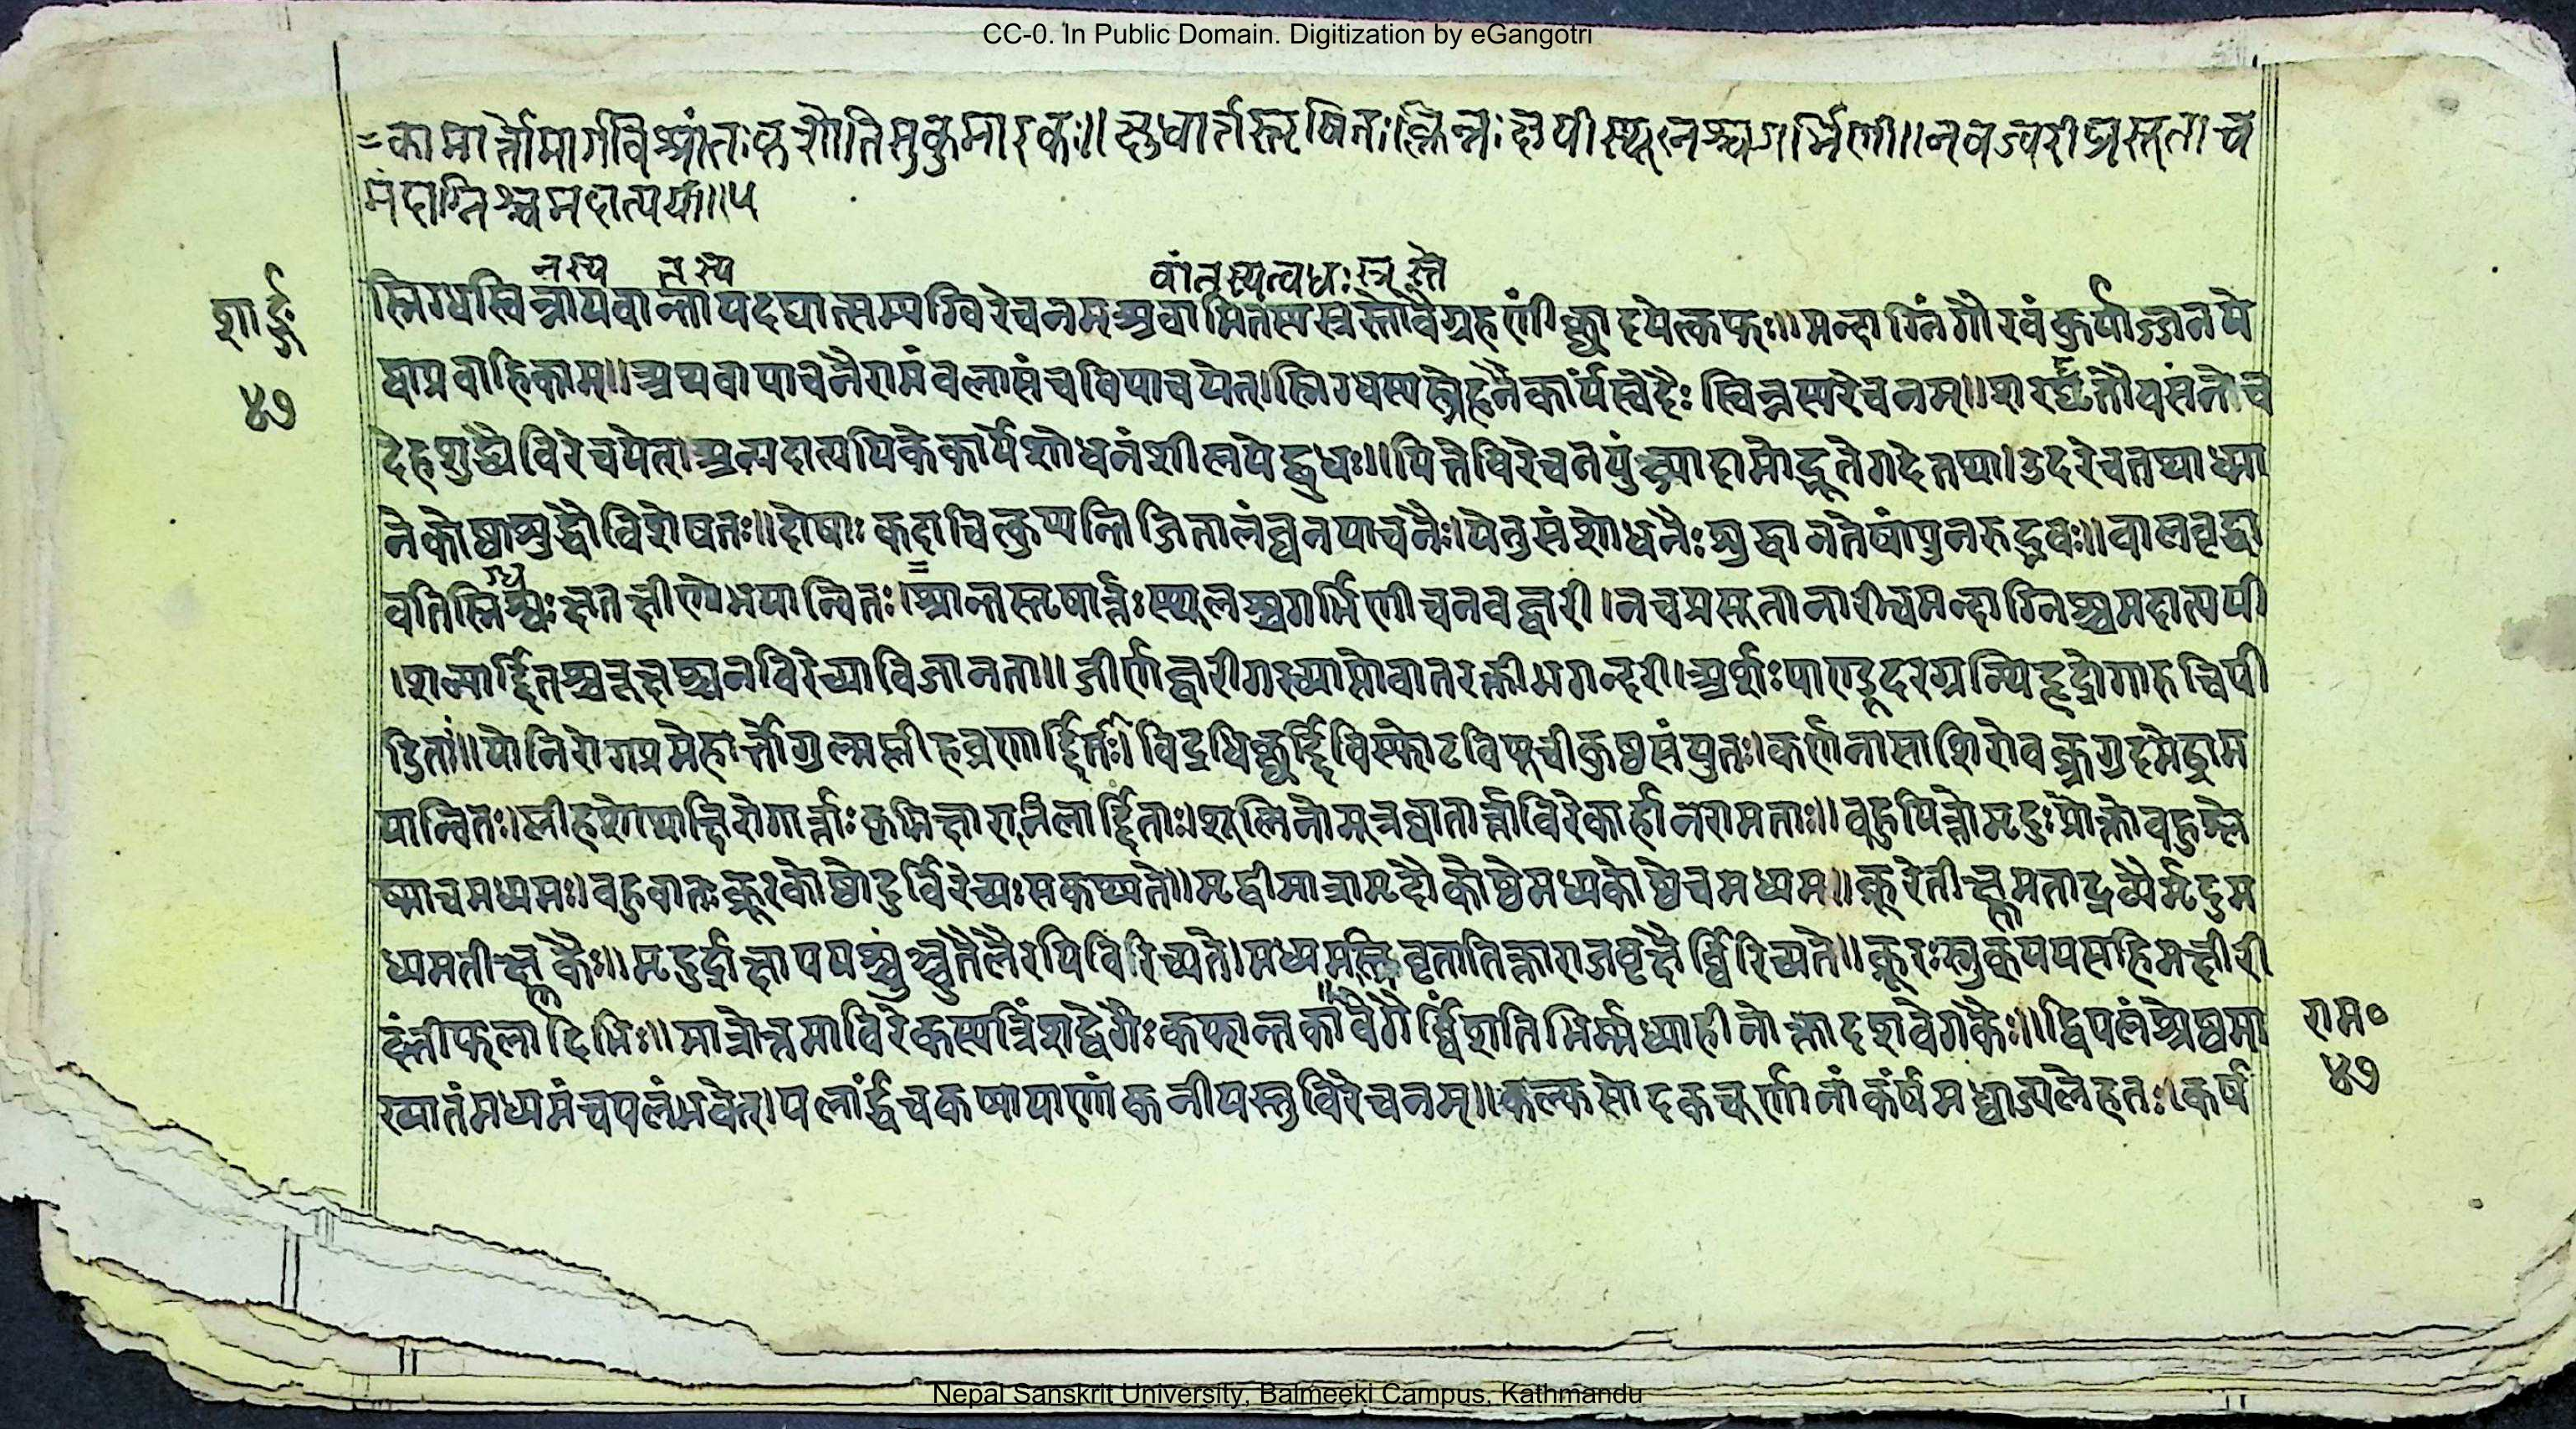 CC-0. In Public Domain. Digitization by eGangotri
=कामार्त्तोमार्गविश्रांतःकृशोतिसुकुमारकः॥क्षुधार्तस्तृषितःक्लिन्नःक्षयीस्थूलश्चगर्भिणी॥नवज्वरीप्रसूताच
मंदाग्निश्चमदात्ययी॥५
नस्य नस्य वांतस्यत्वधःस्त्रस्तो
शार्ङ्ग
स्निग्धस्विन्नायवान्तायदद्यात्सम्यग्विरेचनम्अवामितस्यस्त्रस्तोवैग्रहणींछादयेत्कफः॥मन्दाग्निंगौरवंकुर्याज्जनये
४७
द्वाप्रवाहिकाम्॥अथवापाचनैरामंवलासंचविपाचयेत्।स्निग्धस्यस्नेहनैकार्यंस्वेदैःस्विन्नस्यरेचनम्॥शरदृतौवसंतेच
देहशुद्ध्यैविरेचयेत्।अन्यदात्ययिकेकार्येशोधनंशीलयेद्बुधः॥पित्तेविरेचनंयुंज्यादामोद्भूतेगदेतथा।उदरेचतथाध्मा
नेकोष्ठाशुद्धौविशेषतः॥दोषाःकदाचित्कुप्यन्तिजितालंघनपाचनैः।येतुसंशोधनैःशुद्धानतेषांपुनरुद्भवः॥वालवृद्धा
वतिस्निग्धःक्षतक्षीणोभयान्वितः।=श्रान्तस्तृषार्त्तःस्थूलश्चगर्भिणीचनवज्वरी।नचप्रसूतानारीचमन्दाग्निश्चमदात्ययी
।शल्यार्द्दितश्चरूक्षश्चनविरेच्याविजानता॥जीर्णज्वरीगरव्याप्तोवातरक्तीभगन्दरी।अर्शःपाण्डूदरग्रन्थिहृद्रोगारुचिपी
डिताः॥योनिरोगप्रमेहार्त्तोगुल्मप्लीहव्रणार्द्दितः।विद्रधिछर्द्दिविस्फोटविषूचीकुष्ठसंयुतः।कर्णनासाशिरोवक्त्रगुदमेढ्राम
यान्वितः।प्लीहशोथाक्षिरोगार्त्ताःकृमिक्षारानिलार्द्दिताः।शूलिनोमूत्रघातार्त्ताविरेकार्हानरामताः॥वहुपित्तोमृदुःप्रोक्तोवहुश्ले
ष्माचमध्यमः।वहुवातःक्रूरकोष्ठोदुर्विरेच्यःसकथ्यते॥मृद्वीमात्रामृदौकोष्ठेमध्यकोष्ठेचमध्यम॥क्रूरेतीक्ष्णमताद्रव्यैर्मृदुम
ध्यमतीक्ष्णकैः॥मृदुर्द्राक्षापयश्चंचुतैलैरपिविरिच्यते।मध्यमस्त्रिवृतातिक्ताराजवृक्षैर्व्विरिच्यते॥क्रूरःस्नुक्पयसाहेमक्षीरी
दंतीफलादिभिः॥मात्रोत्तमाविरेकस्यत्रिंशद्वेगैःकफान्तका।वेगैर्व्विंशतिभिर्म्मध्याहीनोक्तादशवेगकैः॥द्विपलंश्रेष्ठमा
राम०
ख्यातंमध्यमंचपलंभवेत्।पलार्द्धंचकषायाणांकनीयस्तुविरेचनम्॥कल्कमोदकचूर्णानांकर्षमध्वाज्यलेहतः।कर्ष
४७
Nepal Sanskrit University, Balmeeki Campus, Kathmandu